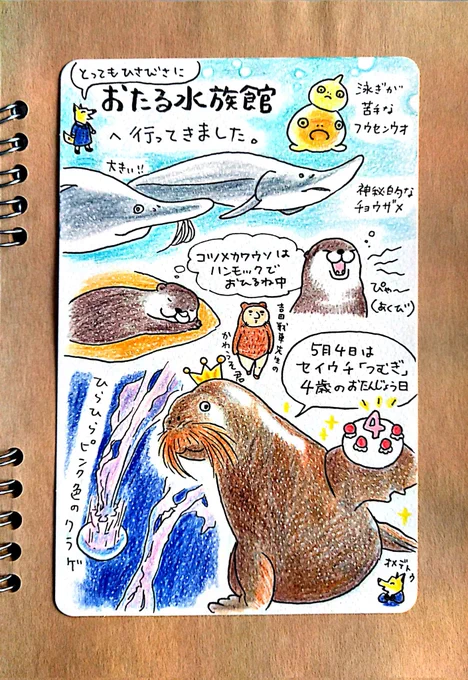 とってもひさびさに
おたる水族館
へ行ってきました。
泳ぎが
苦手な
フウセンウオ
大きい!!
神秘的な
チョウザメ
コツメカワウソは
ハンモックで
おひるね中
ぴゃ〜
(あくび)
吉田戦車先生の
かわうそ君
5月4日は
セイウチ「つむぎ」
4歳のおたんじょう日
4
ひらひらピンク色のクラゲ
オメデトウ